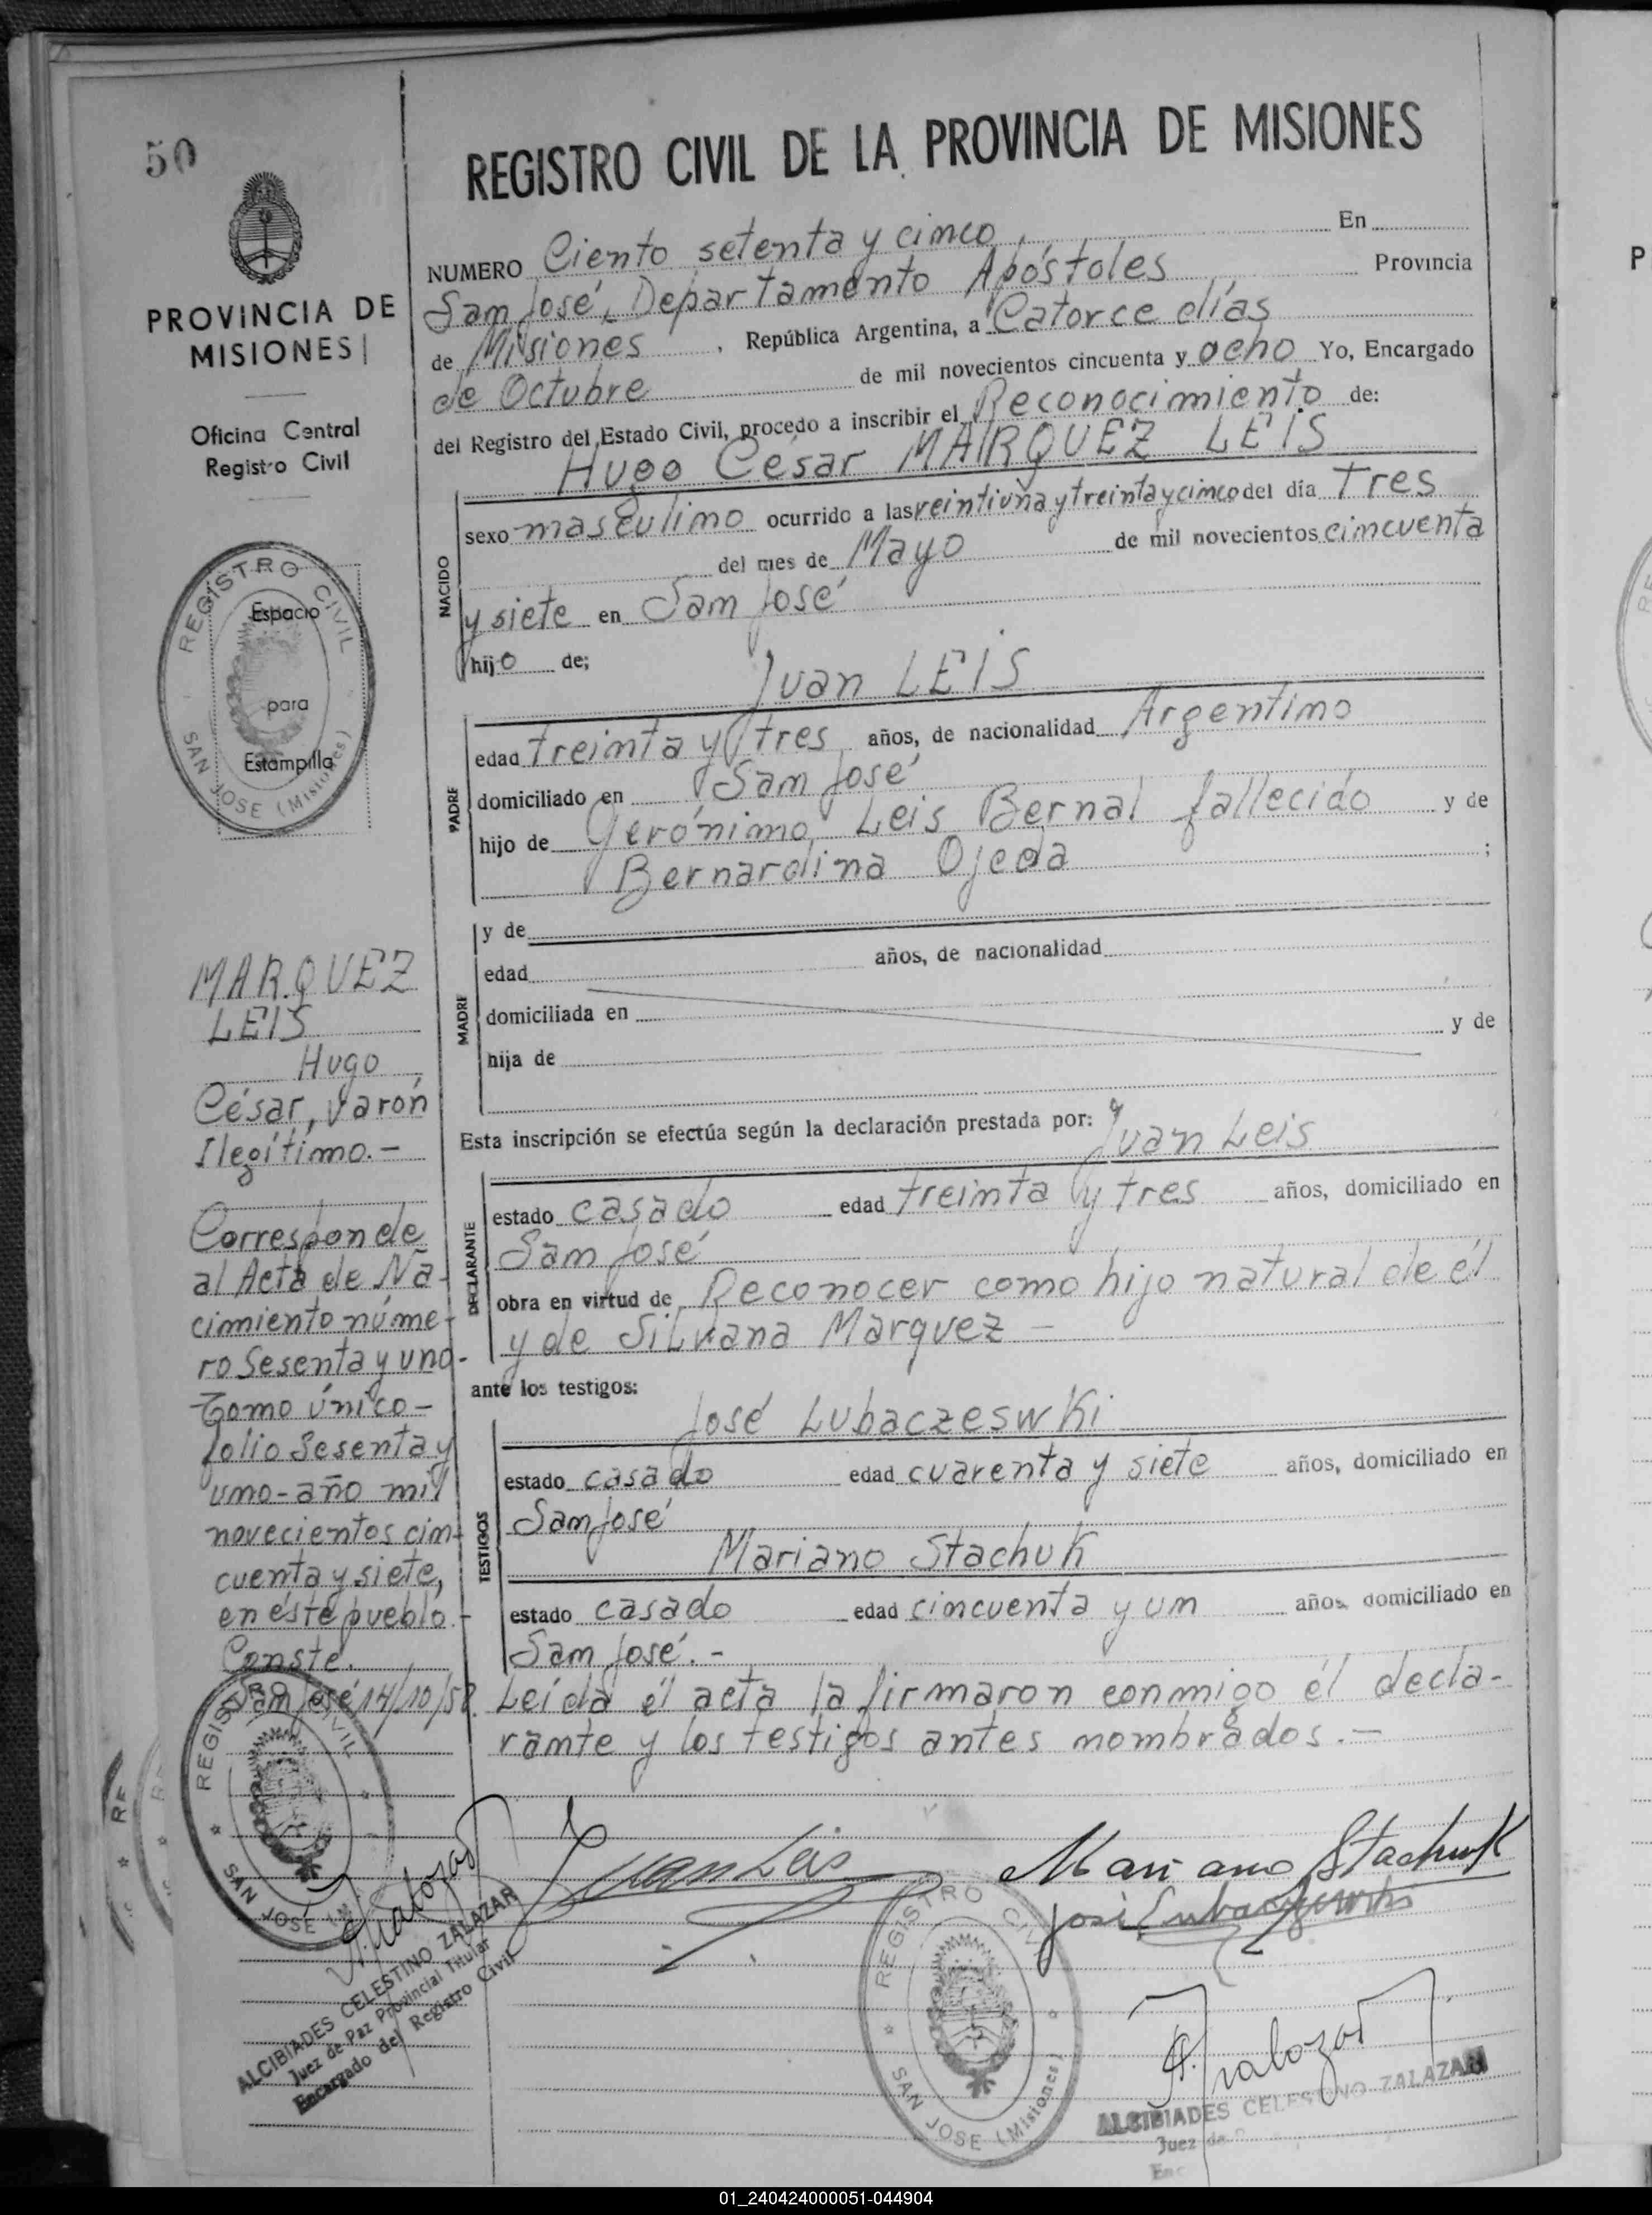 50
PROVINCIA DE
MISIONES
Oficina Central
Registro Civil
REGISTRO CIVIL
Espacio
para
Estampilla
SAN JOSE (Misiones)
MARQUEZ
LEIS
Hugo
César, varón
Ilegítimo.-
Corresponde
al Acta de Na-
cimiento núme-
ro Sesenta y uno-
Tomo único-
folio Sesenta y
uno-año mil
novecientos cin-
cuenta y siete,
en éste pueblo.-
Conste.
San José 14/10/58.
REGISTRO CIVIL
SAN JOSÉ (M
ALCIBIADES CELESTINO ZALAZAR
Juez de Paz Provincial Titular
Encargado del Registro Civil
REGISTRO CIVIL DE LA PROVINCIA DE MISIONES
NUMERO Ciento setenta y cinco, En
San José, Departamento Apóstoles Provincia
de Misiones, República Argentina, a Catorce días
de Octubre de mil novecientos cincuenta y ocho Yo, Encargado
del Registro del Estado Civil, procedo a inscribir el Reconocimiento de:
Hugo César MARQUEZ LEIS
NACIDO
sexo masculino ocurrido a las veintiuna y treinta y cinco del día Tres
del mes de Mayo de mil novecientos cincuenta
y siete en San José
hijo de;
Juan LEIS
PADRE
edad treinta y tres años, de nacionalidad Argentino
domiciliado en San José
hijo de Gerónimo Leis Bernal fallecido y de
Bernardina Ojeda ;
MADRE
y de
edad años, de nacionalidad
domiciliada en
hija de y de
Esta inscripción se efectúa según la declaración prestada por: Juan Leis
DECLARANTE
estado casado edad treinta y tres años, domiciliado en
San José
obra en virtud de Reconocer como hijo natural de él
y de Silvana Marquez -
ante los testigos:
José Lubaczeswki
TESTIGOS
estado casado edad cuarenta y siete años, domiciliado en
San José
Mariano Stachuk
estado casado edad cincuenta y un años domiciliado en
San José.-
Leída él acta la firmaron conmigo él decla-
rante y los testigos antes nombrados.-
Juan Leis
Mariano Stachuk
José
REGISTRO CIVIL
SAN JOSE (Misiones)
ALCIBIADES CELESTINO ZALAZAR
Juez de
01_240424000051-044904